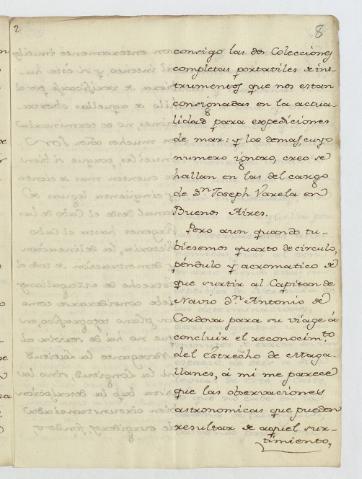 2
8
consigo las dos Colecciones
completas portatiles de ins-
trumentos que nos estan
consignadas en la actua-
lidad para expediciones
de mar: y los demas, cuyo
numero ignoro, creo se
hallan en las del cargo
de Dn. Joseph Varela en
Buenos Aires.
Pero aun quando tu-
biesemos quarto de circulo,
péndulo y acromatico de
que surtir al Capitan de
Navio Dn. Antonio de
Cordova para su viage á
concluir el reconocimto
del Estrecho de Maga-
llanes, á mi me parece
que las observaciones
astronomicas que pueden
resultar de aquel sur-
timiento,